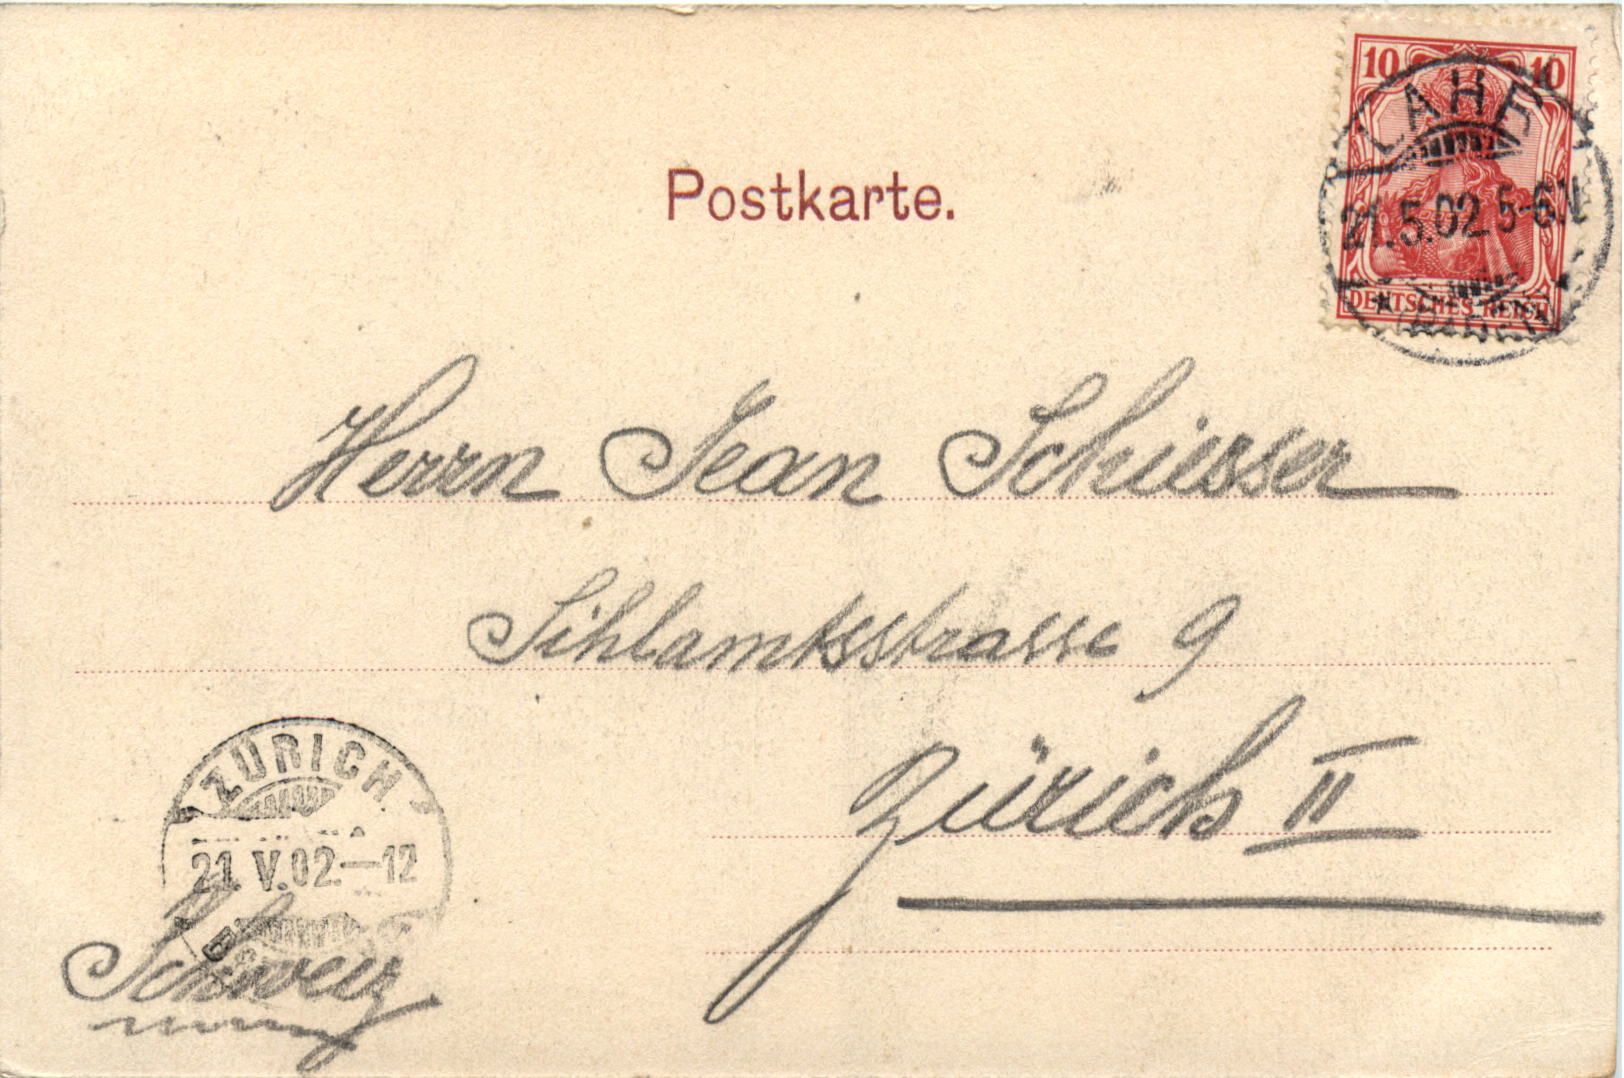 10 10
LAHR
21.5.02.5-6N
DEUTSCHES REICH
(BADEN)
Postkarte.
Herrn Jean Schiesser
Sihlamtsstrasse 9
Zürich II
ZÜRICH
21. V. 02.–12
Schweiz